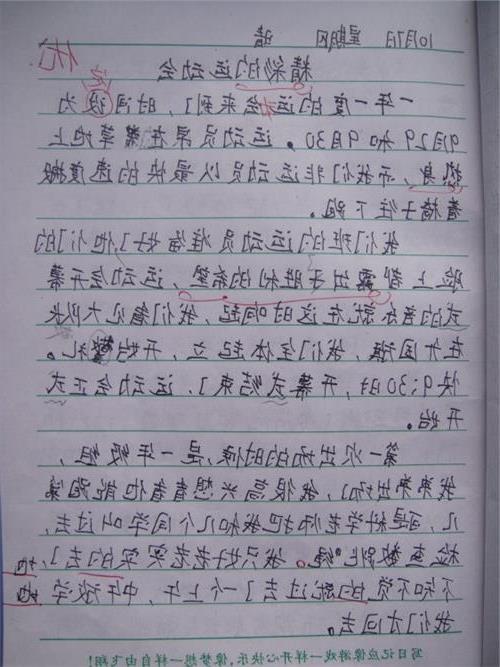 10月7日 星期四 晴
优
精彩的运动会
一年一度的运动会来到了,时间设为
9月29和9月30。运动员在草地上
热身,而我们非运动员以最快的速度搬
着椅子往下跑。
我们班的运动员准备好了,他们的
脸上都露出了胜利的希望,运动会开幕
式的音乐就在这时响起,我们大队
在升国旗,我们全体起立,开始敬礼。
快9:30时,开幕式结束了,运动会正式
开始。
第一次出场的时候,是一年级组,
我弟弟出场了,我很高兴想看看他能跑第
几,可是科学老师把我和几个同学叫过去,
检查数。我只好老老实实的去了,
不知不觉的就过去了一个上午,中午放学
地
地
我们才回去。
写日记应像游戏一样开心快乐,像梦想一样自由飞翔!